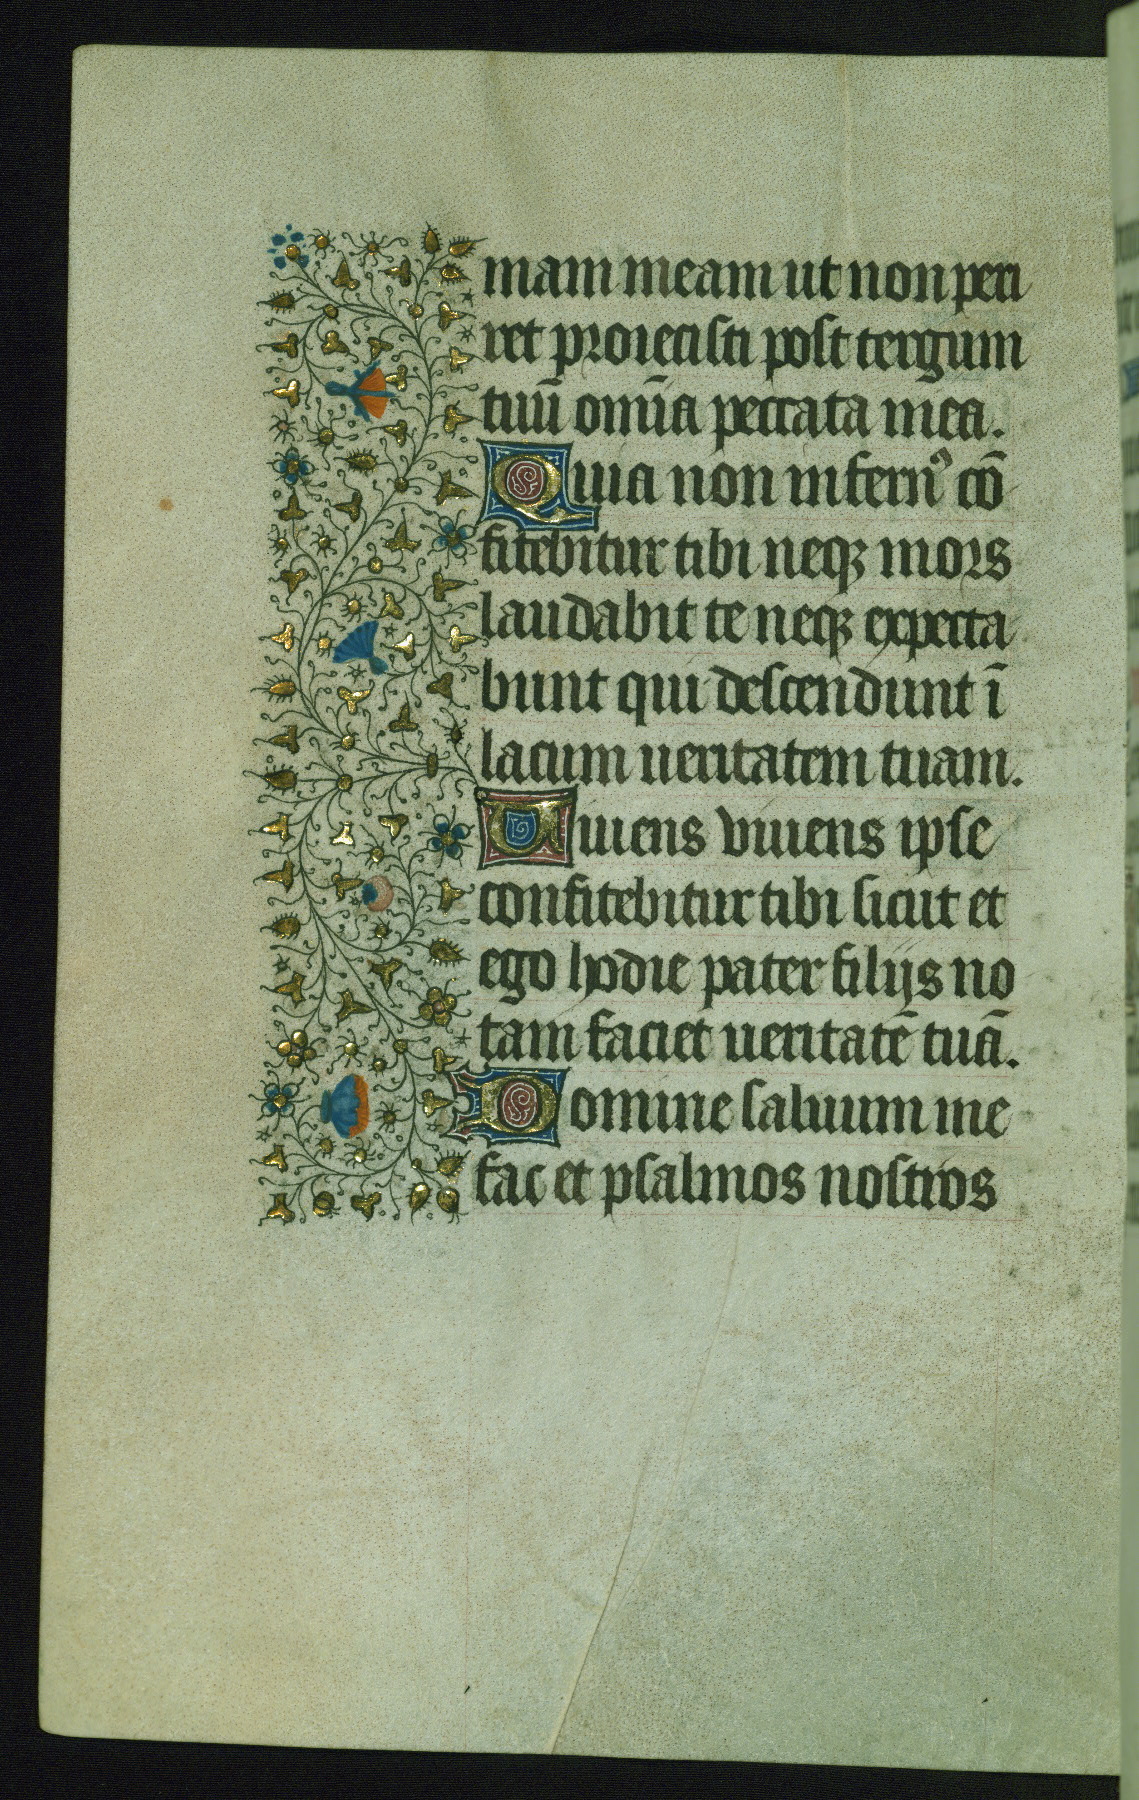 mam meam ut non peri
ret proiecisti post tergum
tuū om̄ia peccata mea.
Quia non infernꝰ cō
fitebitur tibi neqꝫ mors
laudabit te neqꝫ expecta
bunt qui descendunt ī
lacum ueritatem tuam.
Viuens viuens ipse
confitebitur tibi sicut et
ego hodie pater filijs no
tam faciet ueritatē tuā.
Domine saluum me
fac et psalmos nostros